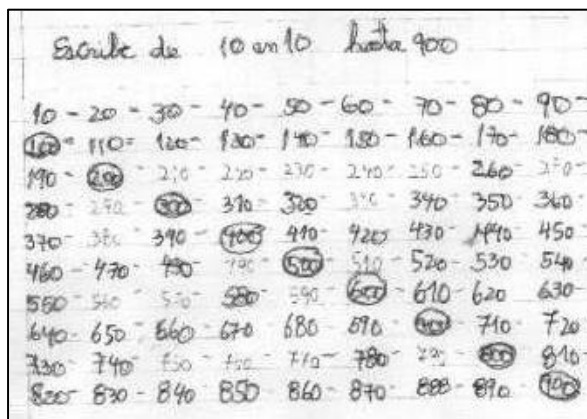 Escribe de 10 en 10 hasta 900
10 - 20 - 30 - 40 - 50 - 60 - 70 - 80 - 90 -
100 - 110 - 120 - 130 - 140 - 150 - 160 - 170 - 180 -
190 - 200 - 210 - 220 - 230 - 240 - 250 - 260 - 270 -
280 - 290 - 300 - 310 - 320 - 330 - 340 - 350 - 360 -
370 - 380 - 390 - 400 - 410 - 420 - 430 - 440 - 450
460 - 470 - 480 - 490 - 500 - 510 - 520 - 530 - 540 -
550 - 560 - 570 - 580 - 590 - 600 - 610 - 620 - 630 -
640 - 650 - 660 - 670 - 680 - 690 - 700 - 710 - 720
730 - 740 - 750 - 760 - 770 - 780 - 790 - 800 - 810 -
820 - 830 - 840 - 850 - 860 - 870 - 880 - 890 - 900